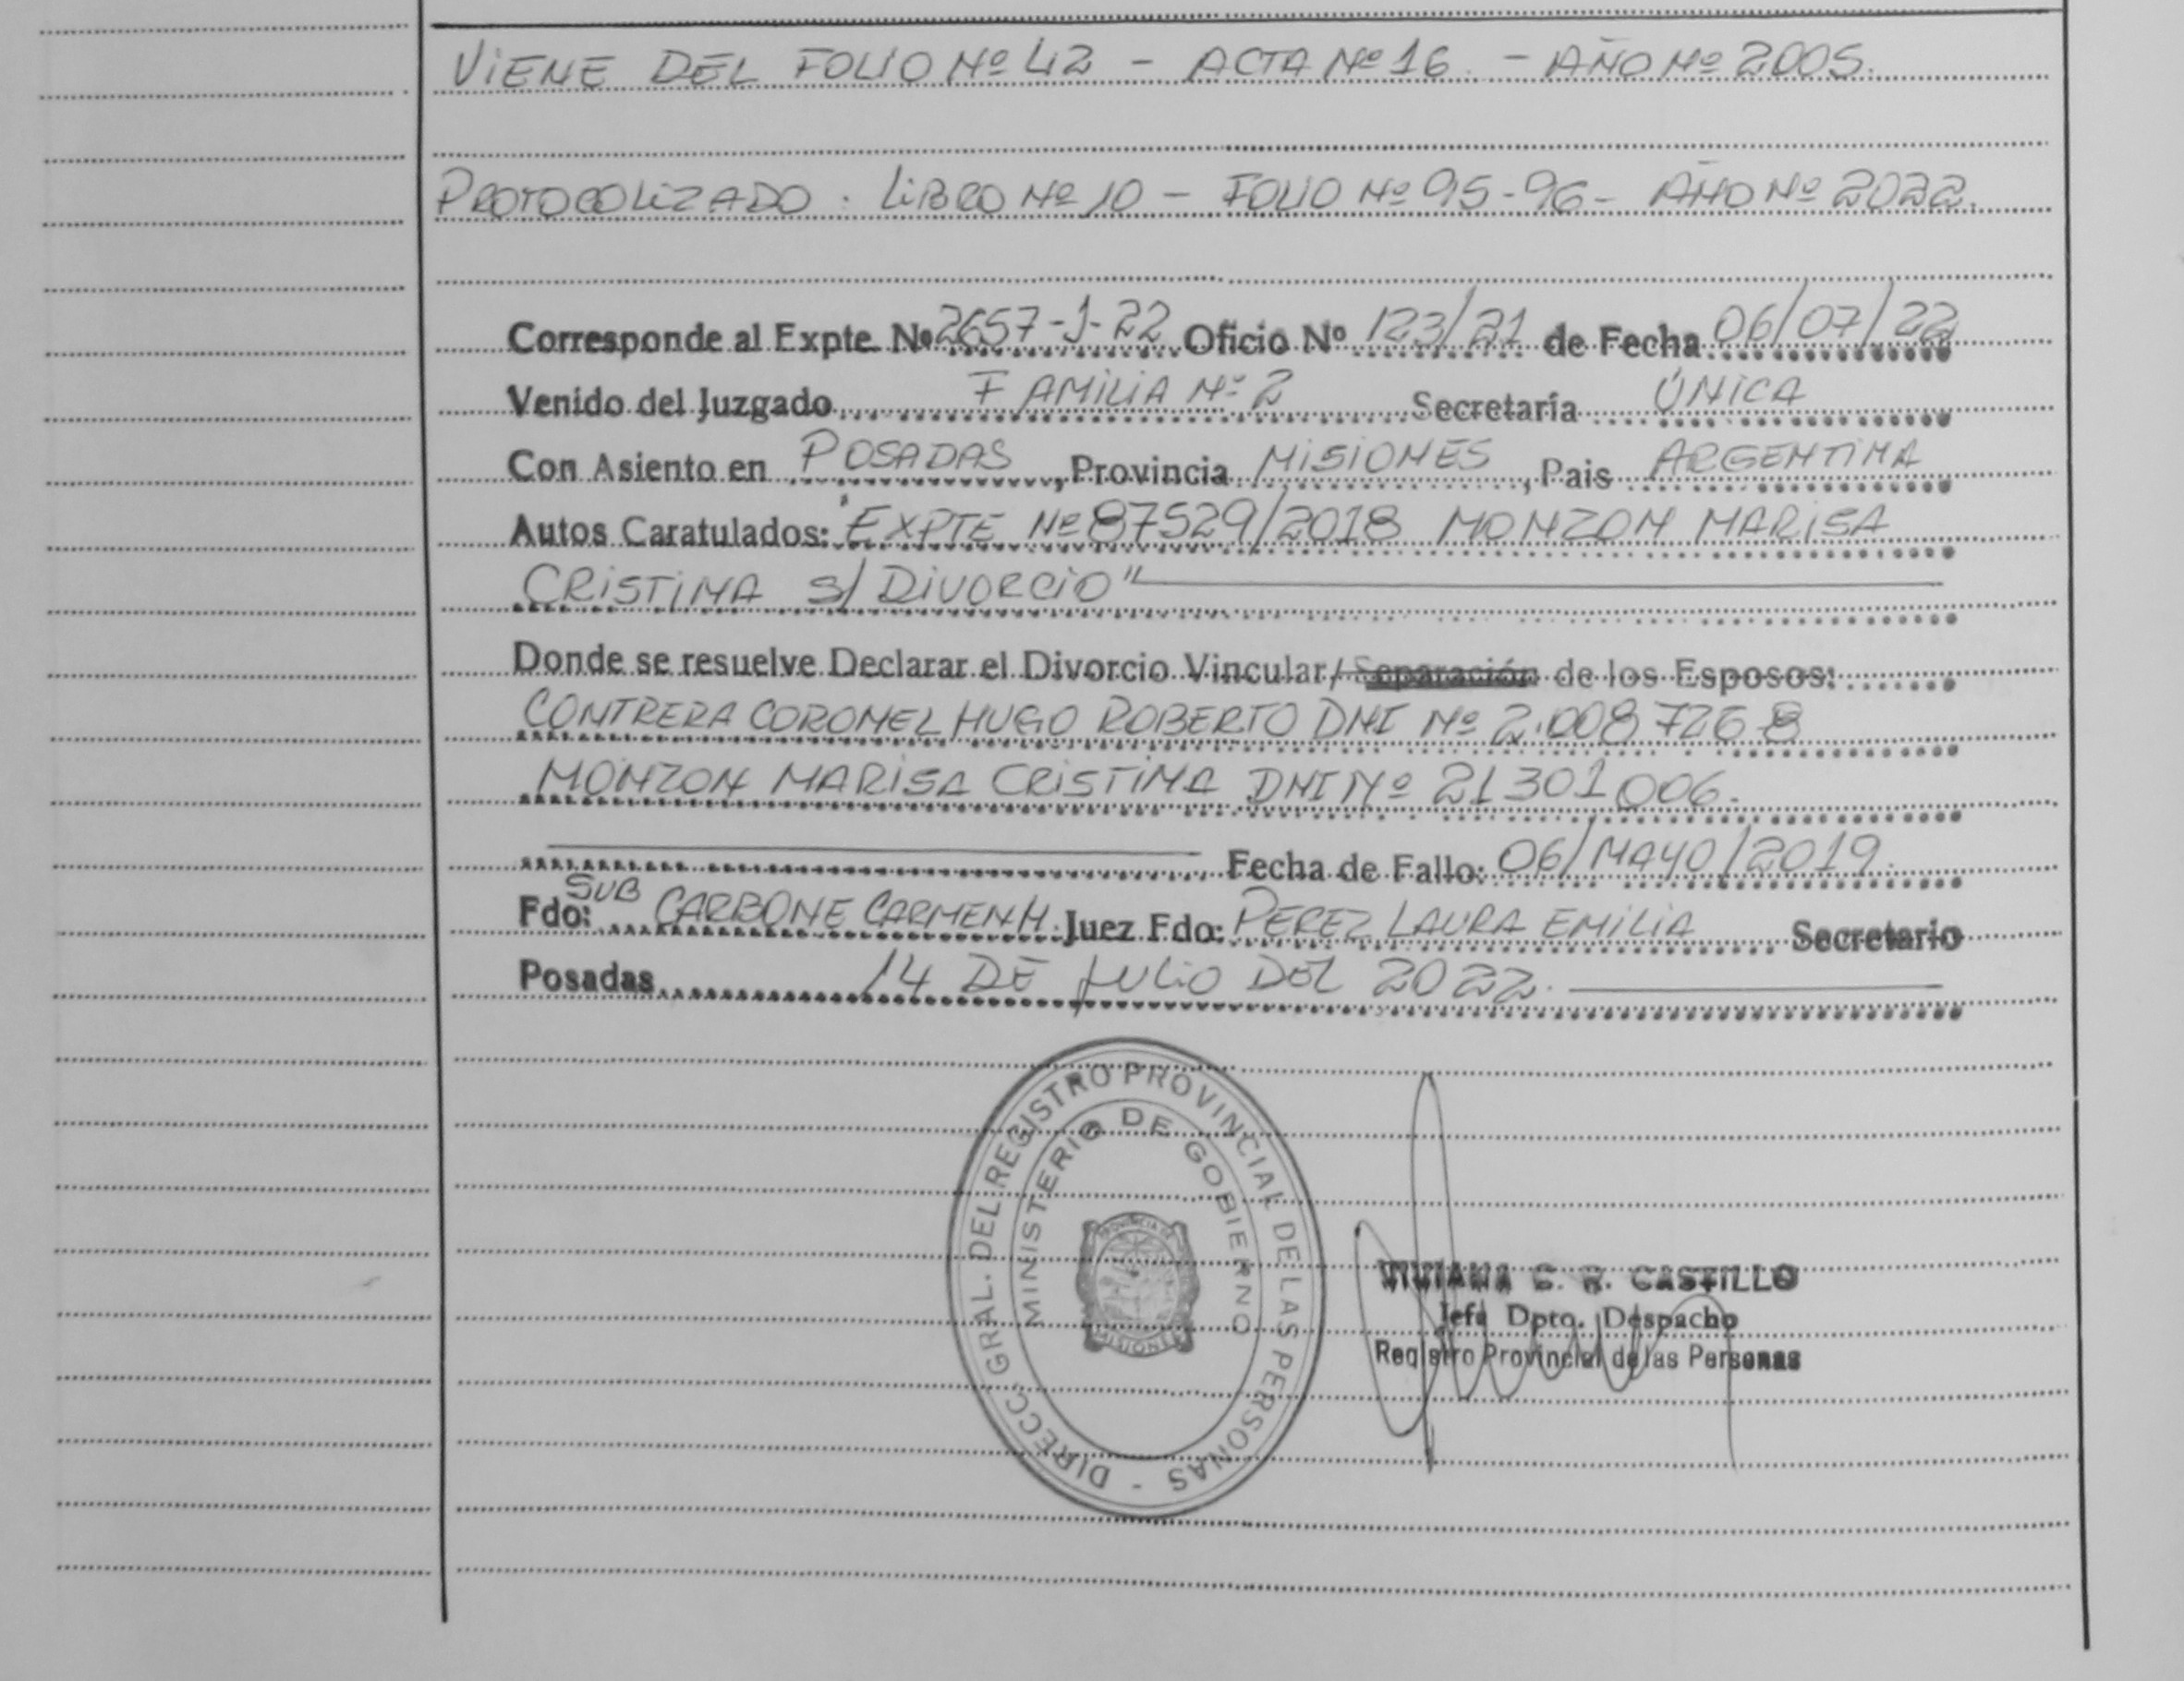 VIENE DEL FOLIO Nº 42 - ACTA Nº 16. - AÑO Nº 2005.
PROTOCOLIZADO: LIBRO Nº 10 - FOLIO Nº 95-96 - AÑO Nº 2022.
Corresponde al Expte. Nº 2657-J-22 Oficio Nº 123/21 de Fecha 06/07/22
Venido del Juzgado FAMILIA Nº 2 Secretaría ÚNICA
Con Asiento en POSADAS, Provincia MISIONES, Pais ARGENTINA
Autos Caratulados: "EXPTE Nº 87529/2018 MONZON MARISA
CRISTINA s/ DIVORCIO"
Donde se resuelve Declarar el Divorcio Vincular/Separación de los Esposos:
CONTRERA CORONEL HUGO ROBERTO DNI Nº 2.0087268
MONZON MARISA CRISTINA DNI Nº 21301006.
Fecha de Fallo: 06/MAYO/2019.
Fdo: SUB CARBONE CARMEN H. Juez Fdo: PEREZ LAURA EMILIA Secretario
Posadas 14 DE JULIO DEL 2022.
DIRECC. GRAL. DEL REGISTRO PROVINCIAL DE LAS PERSONAS -
MINISTERIO DE GOBIERNO
PROVINCIA DE
MISIONES
VIVIANA C. R. CASTILLO
Jefa Dpto. Despacho
Registro Provincial de las Personas